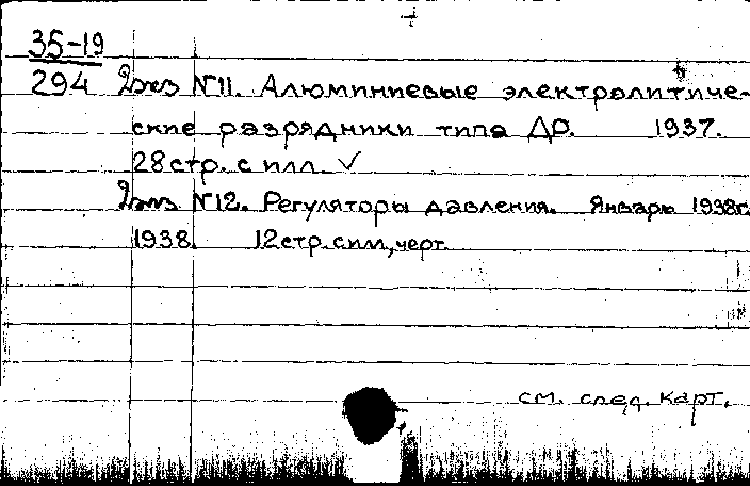 35-19
294 2экз N11. Алюминиевые электролитиче-
ские разрядники типа ДР. 1937.
28 стр. с илл. ✓
2экз N12. Регуляторы давления. Январь 1938г.
1938. 12 стр. с илл, черт.
см. след. карт.